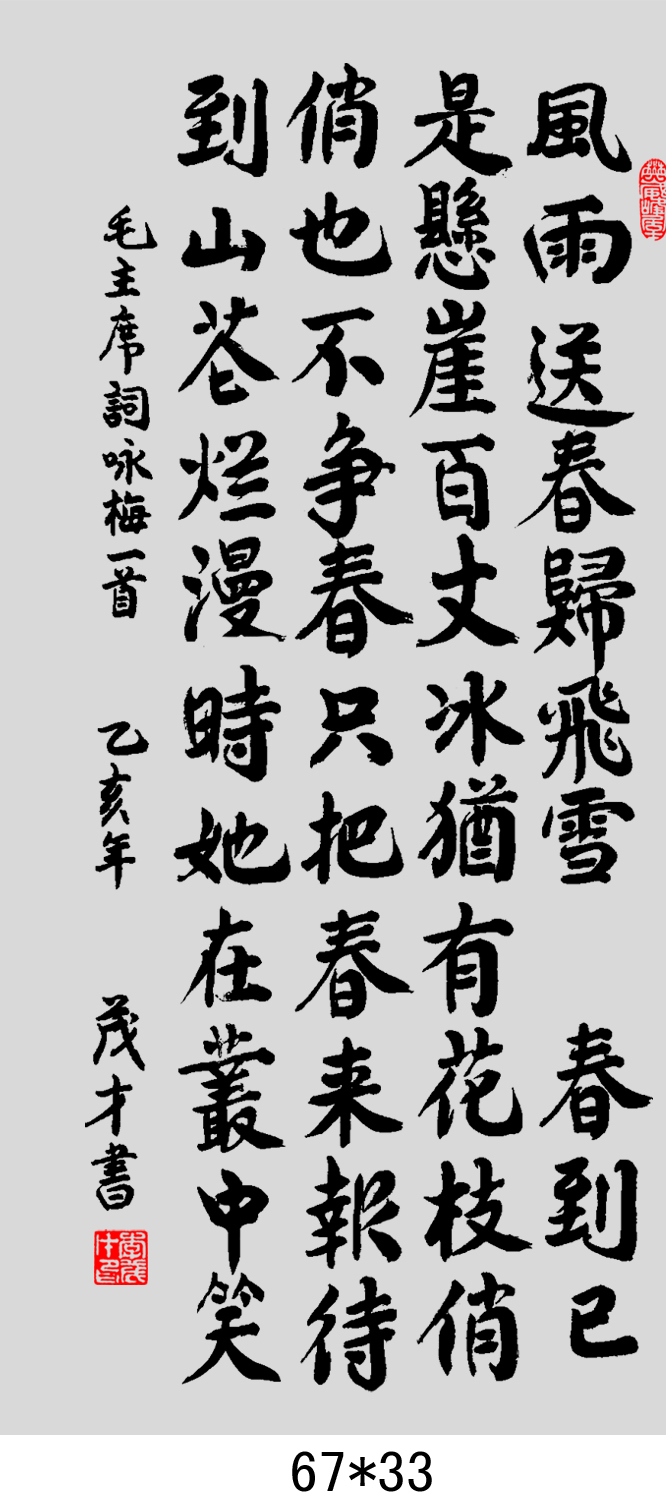 風雨送春歸飛雪 春到已
是懸崖百丈冰猶有花枝俏
俏也不争春只把春来報待
到山花烂漫時她在叢中笑
毛主席詞咏梅一首 乙亥年 茂才書
67*33